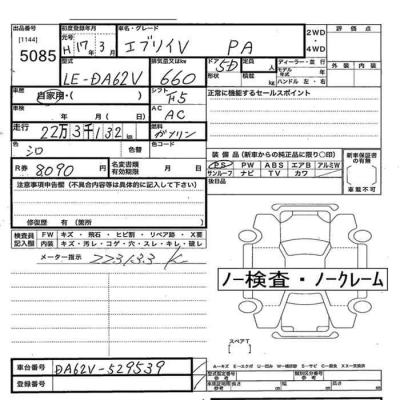 出品番号 [1144] 5085
初度登録年月 H 17年 3月
車名・グレード エブリイV PA
2WD・4WD
評価点
型式 LE-DA62V
排気量又はkW 660
ドア 5D 形状
定員 人
積載量 kg
ディーラー・並行
モデル年式 年
ハンドル 左・右
外装 内装
車歴 自家用・( )
シフト F5
正常に機能するセールスポイント
車検 年 月( 日)
AC AC
走行 22万3千132km
燃料 ガソリン
色 シロ
色替
色コード
装備品(新車からの純正品に限り○印)
PS PW ABS エアB アルミW
サンルーフ ナビ TV カワ
新車保証書の有無
車載不可
R券 8090円
名変書類有効期限 月 日
後日品
注意事項申告欄(不具合内容等は具体的に記入して下さい)
修復歴 有(箇所)
検査員記入欄
FW キズ・飛石・ヒビ割・リペア跡・X要
内装 キズ・汚レ・コゲ・穴・スレ・キレ・破レ
メーター指示 223133 K
ノー検査・ノークレーム
スペアT
車台番号 DA62V-529539
登録番号